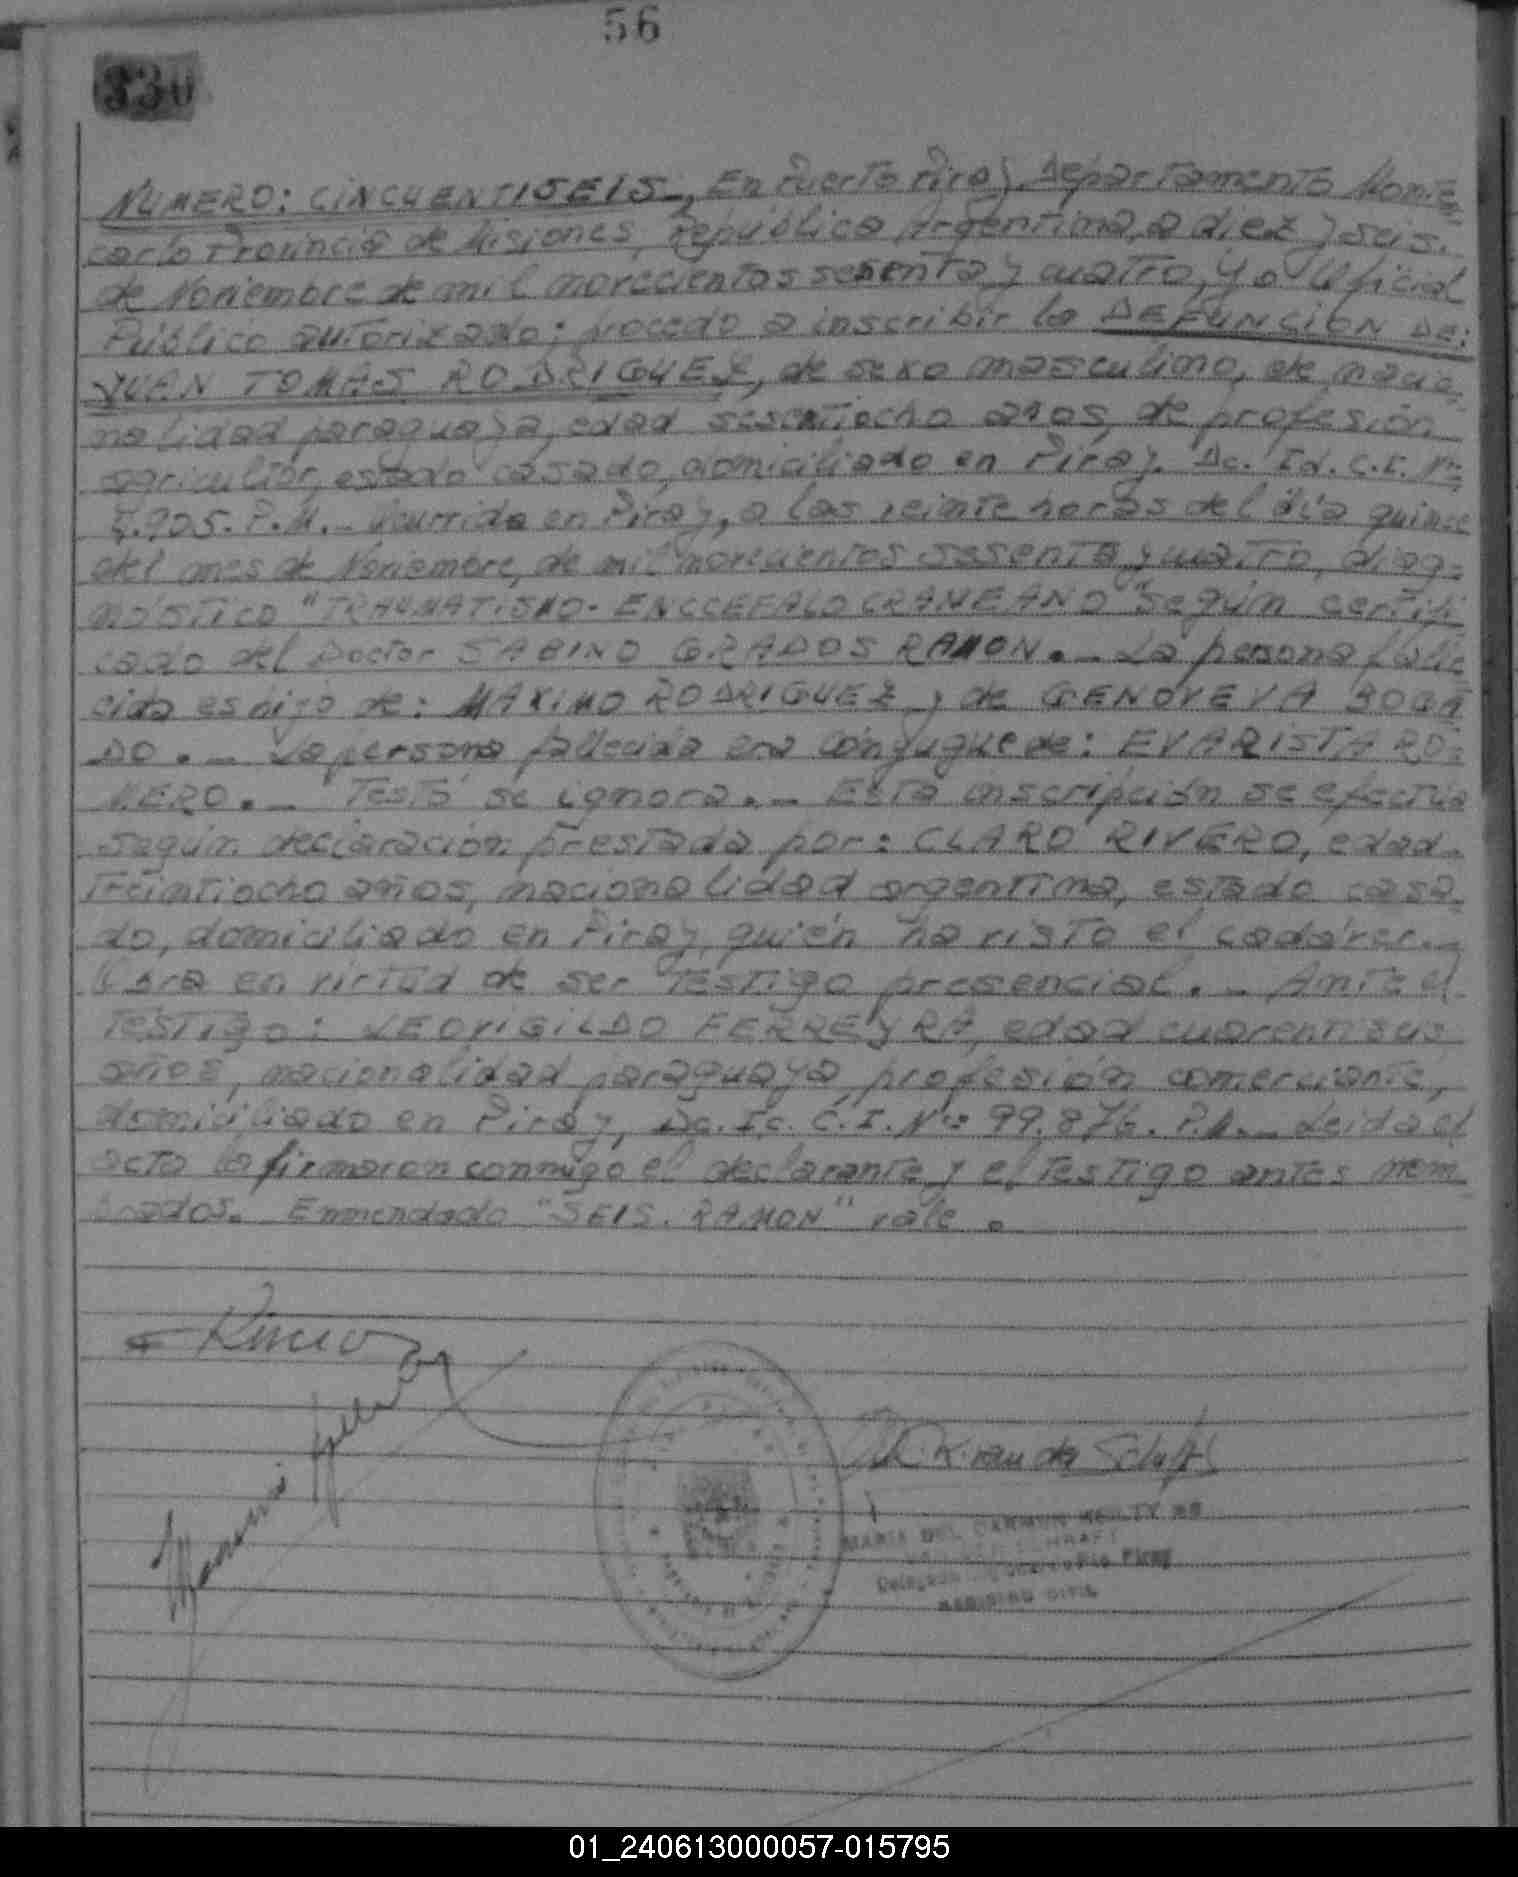 56
330
NUMERO: CINCUENTISEIS._ En Puerto Piray Departamento Monte=
carlo Provincia de Misiones, República Argentina, a diez y seis.
de Noviembre de mil novecientos sesenta y cuatro, Yo Oficial
Público autorizado; procedo a inscribir la DEFUNCION DE:
JUAN TOMAS RODRIGUEZ, de sexo masculino, de nacio=
nalidad paraguaya, edad sesentiocho años, de profesión
agricultor, estado casado, domiciliado en Piray. Dc. Id. C.I. Nº:
.905. P.M._ Ocurrida en Piray, a las veinte horas del día quince
del mes de Noviembre, de mil novecientos sesenta y cuatro, diag=
nóstico "TRAUMATISMO-ENCCEFALOCRANEANO" según certifi
cado del Doctor SABINO GRADOS RAMON._ La persona falle
cida es hijo de: MAXIMO RODRIGUEZ y de GENOVEVA BOGA
DO._ La persona fallecida era cónyugue de: EVARISTA RO=
MERO._ Testó se ignora._ Esta inscripción se efectúa
según declaración prestada por: CLARO RIVERO, edad.
treintiocho años, nacionalidad argentina, estado casa=
do, domiciliado en Piray, quién ha visto el cadáver._
Obra en virtud de ser Testigo presencial._ Ante el
Testigo: LEOVIGILDO FERREYRA, edad cuarentiseis
años, nacionalidad paraguaya, profesión comerciante,
domiciliado en Piray, Dc. Ic. C.I. Nº: 99.876. P.M._ Leida el
acta la firmaron conmigo el declarante y el testigo antes nom=
brados. Enmendado "SEIS. RAMON" vale.
MARIA DEL CARMEN DE
Piray
REGISTRO CIVIL
01_240613000057-015795